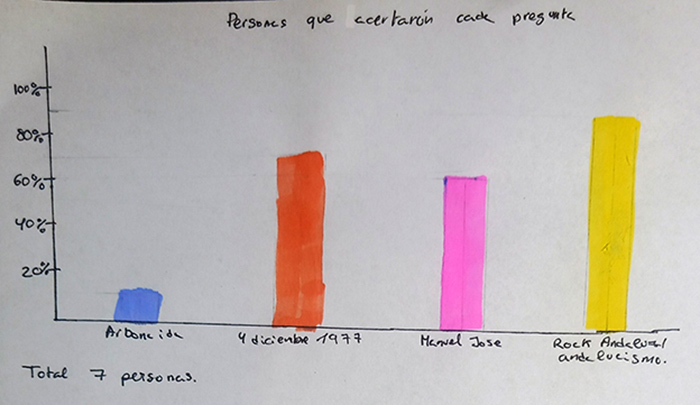 Personas que acertarón cada pregunta
100%
80%
60%
40%
20%
Arbonaida
4 diciembre 1977
Manuel Jose
Rock Andaluz/
andalucismo.
Total 7 personas.